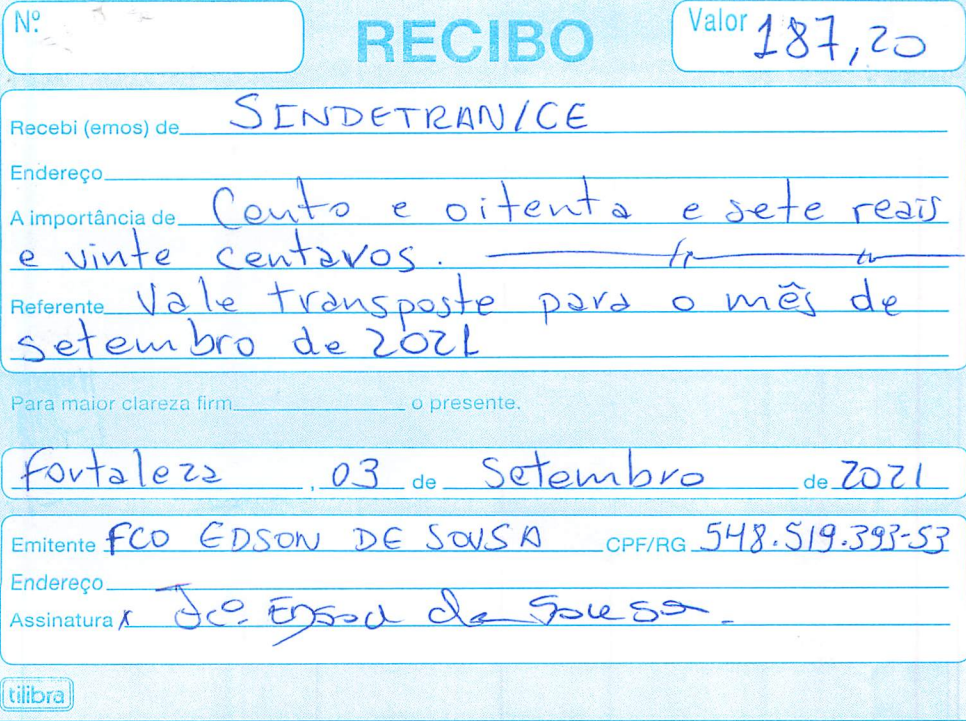 Nº
RECIBO
Valor 187,20
Recebi (emos) de SINDETRAN/CE
Endereço
A importância de Cento e oitenta e sete reais
e vinte centavos.
Referente Vale transposte para o mês de
setembro de 2021
Para maior clareza firm o presente.
Fortaleza, 03 de Setembro de 2021
Emitente FCO EDSON DE SOUSA CPF/RG 548.519.393-53
Endereço
Assinatura x Fcº. Edson de Sousa.
tilibra